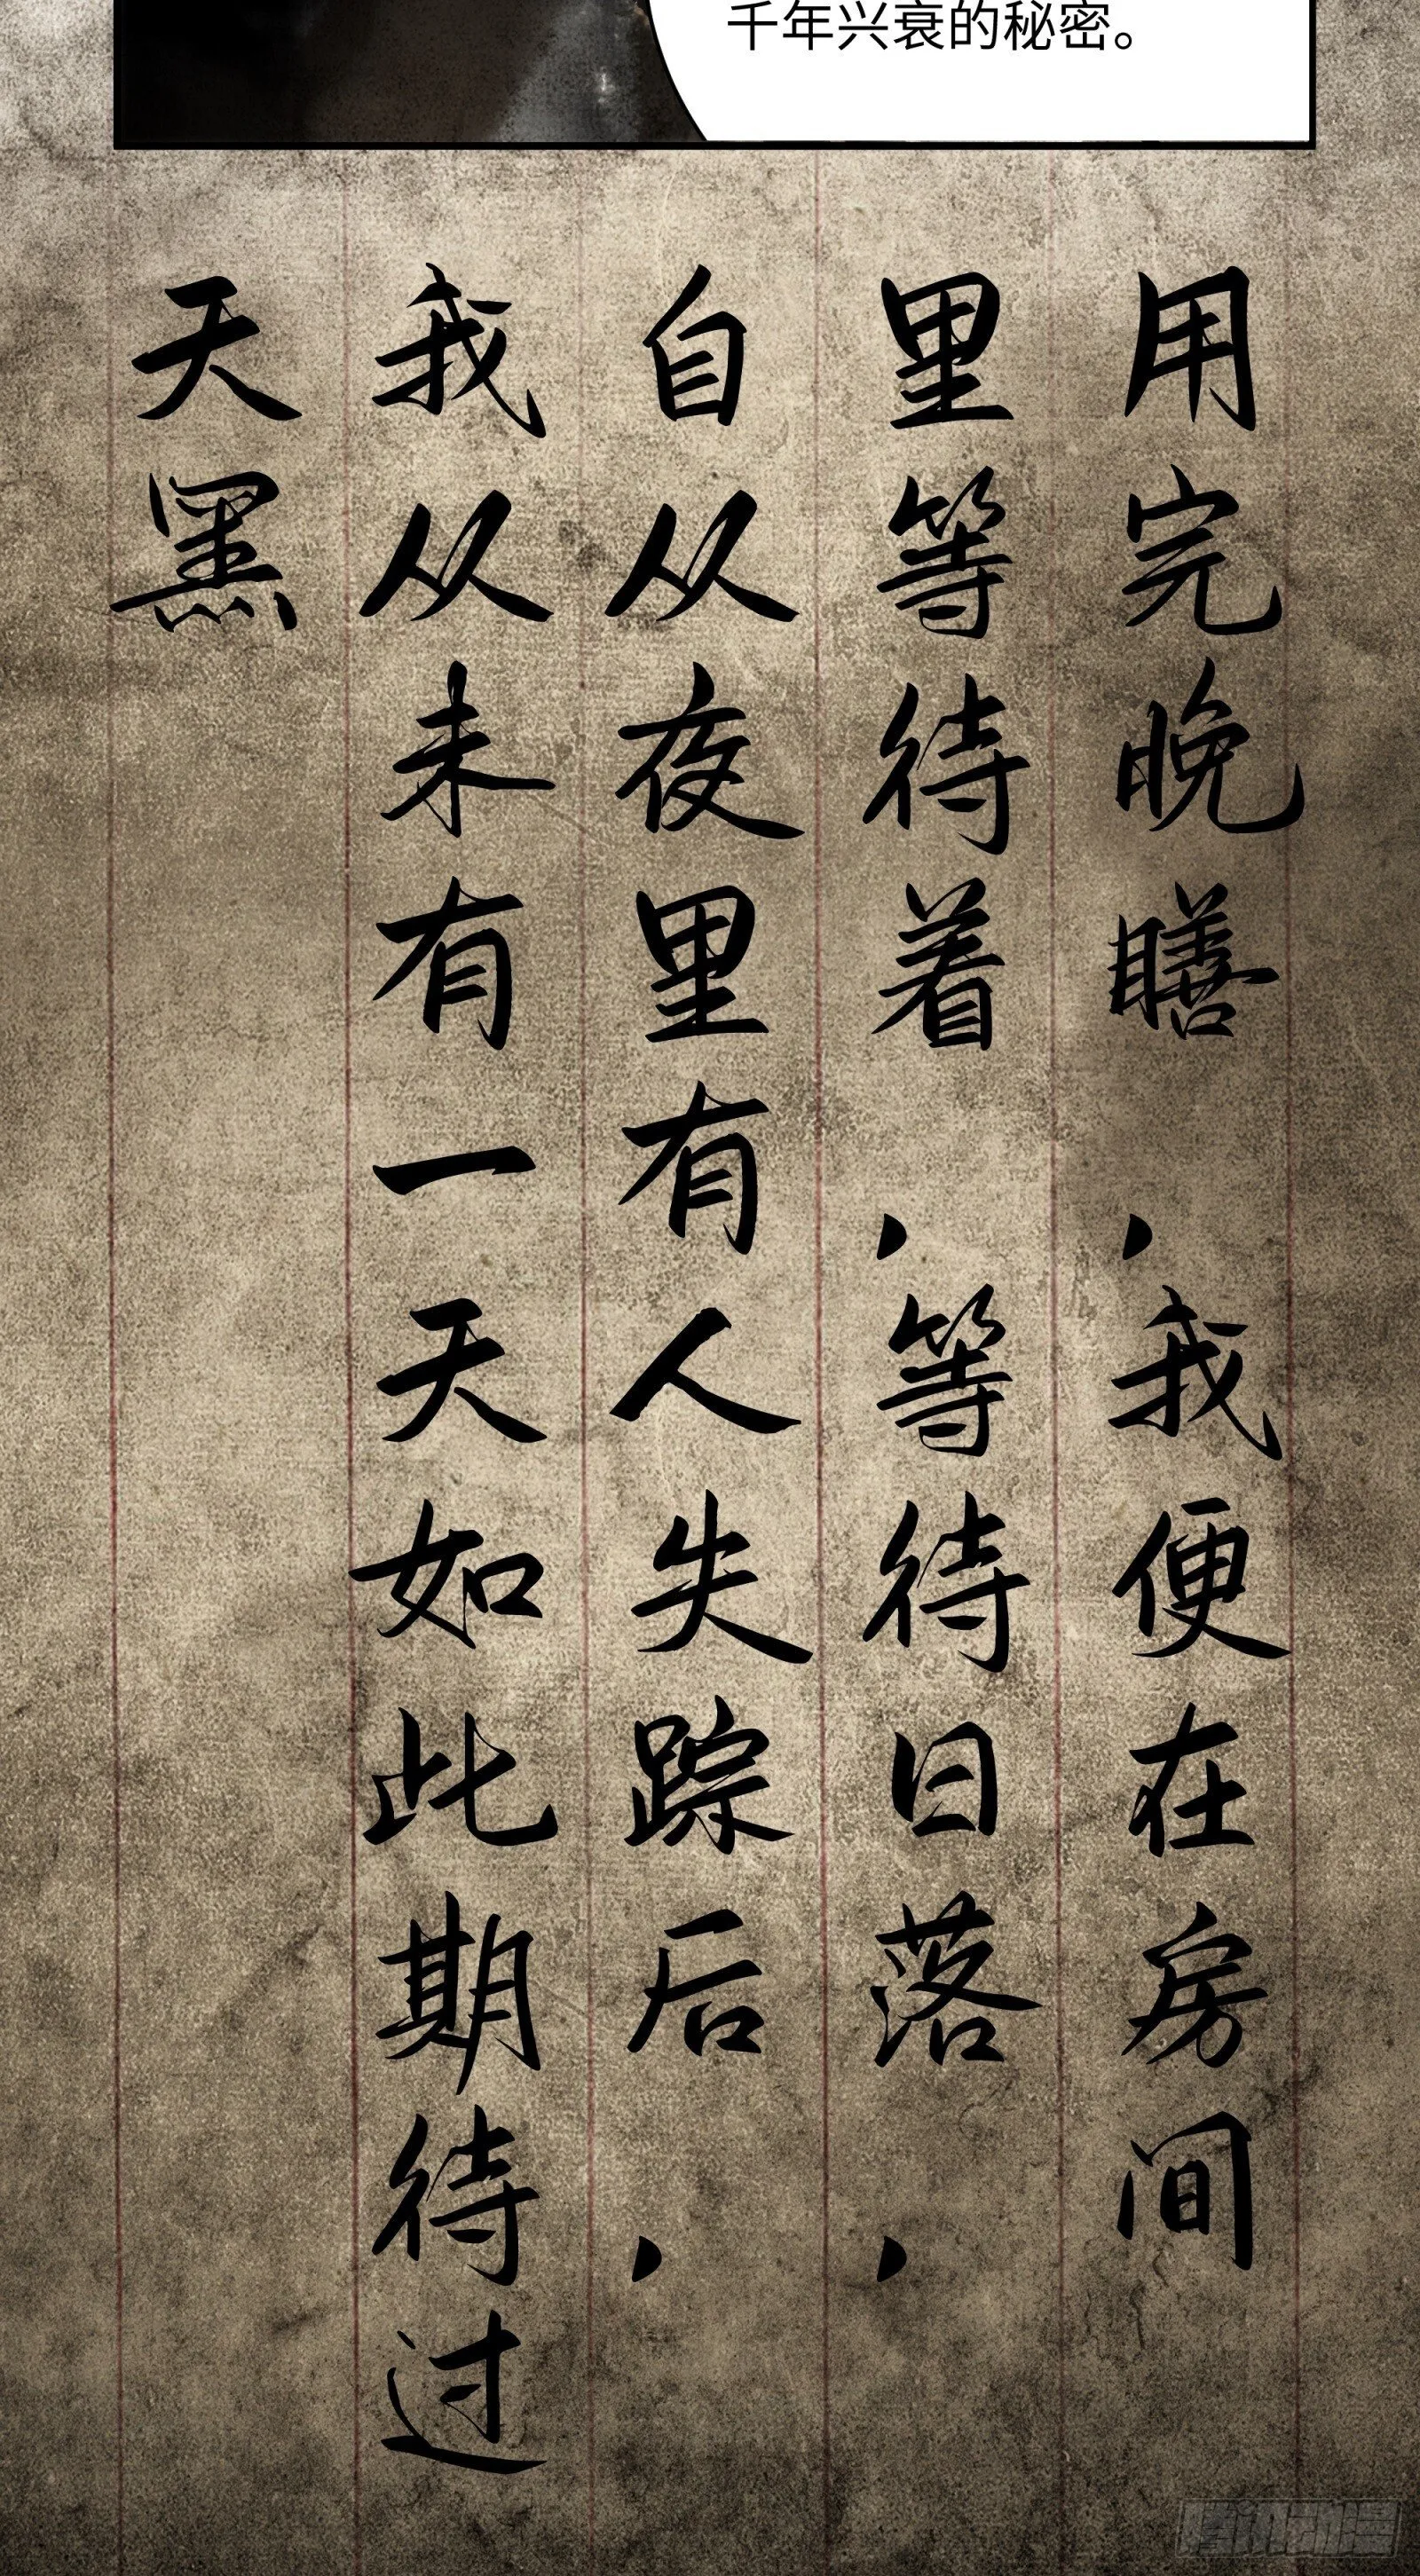 千年兴衰的秘密。
用完晚膳，我便在房间
里等待着，等待日落，
自从夜里有人失踪后，
我从未有一天如此期待过
天黑
腾讯动漫